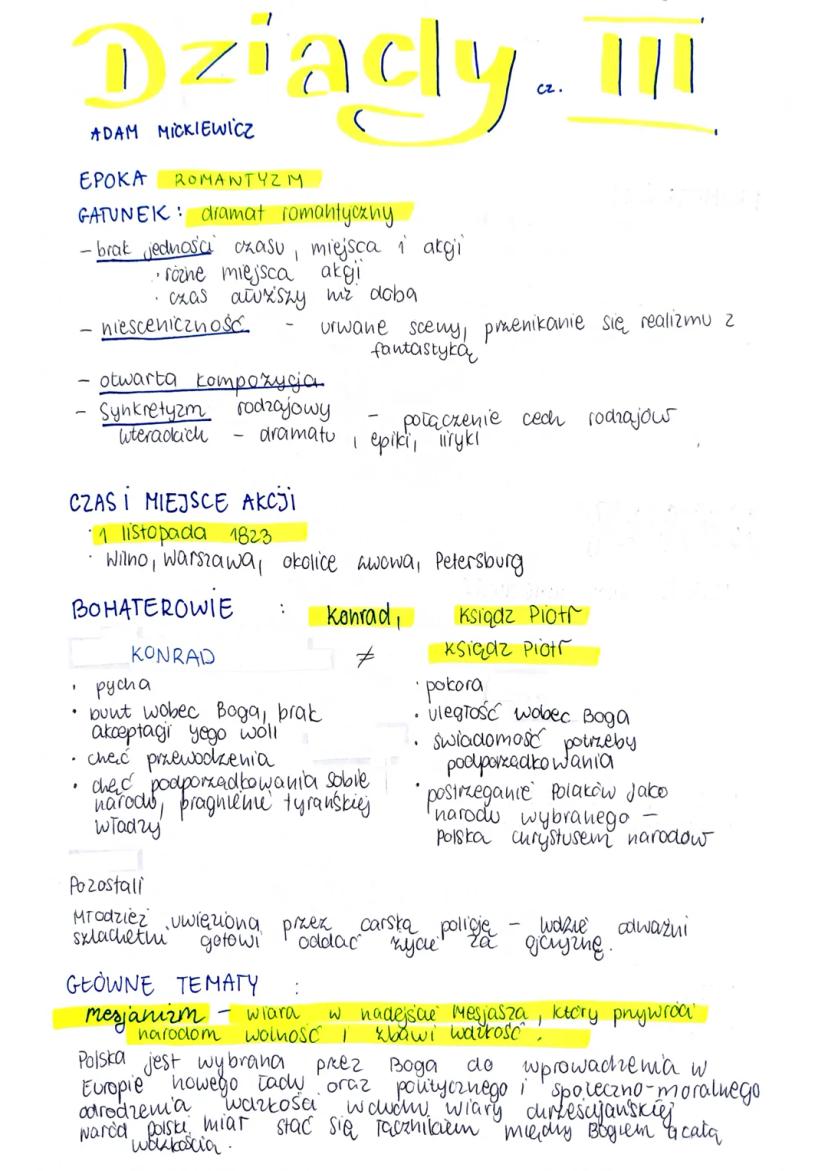 Dziady cz. III
ADAM MICKIEWICZ
EPOKA ROMANTYZM
GATUNEK: dramat romantyczny
- brak jedności czasu, miejsca i akcji
· różne miejsca akcji
· czas dłuższy niż doba
- niesceniczność - urwane sceny, przenikanie się realizmu z
fantastyką
- otwarta kompozycja
- Synkretyzm rodzajowy - połączenie cech rodzajów
literackich - dramatu, epiki, liryki
CZAS i MIEJSCE AKCJI
· 1 listopada 1823
· Wilno, Warszawa, okolice Lwowa, Petersburg
BOHATEROWIE : Konrad, Ksiądz Piotr
KONRAD ≠ Ksiądz Piotr
· pycha
· bunt wobec Boga, brak
akceptacji jego woli
· chęć przewodzenia
· chęć podporządkowania sobie
narodu, pragnienie tyrańskiej
władzy
· pokora
· uległość wobec Boga
· świadomość potrzeby
podporządkowania
· postrzeganie Polaków jako
narodu wybranego -
Polska Chrystusem narodów
Pozostali
Młodzież uwięziona przez carską policję - ludzie odważni
szlachetni gotowi oddać życie za ojczyznę.
GŁÓWNE TEMATY :
Mesjanizm - wiara w nadejście Mesjasza, który przywróci
narodom wolność i zbawi ludzkość.
Polska jest wybrana przez Boga do wprowadzenia w
Europie nowego ładu oraz politycznego i społeczno-moralnego
odrodzenia ludzkości w duchu wiary chrześcijańskiej
naród polski miał stać się łącznikiem między Bogiem a całą
ludzkością.